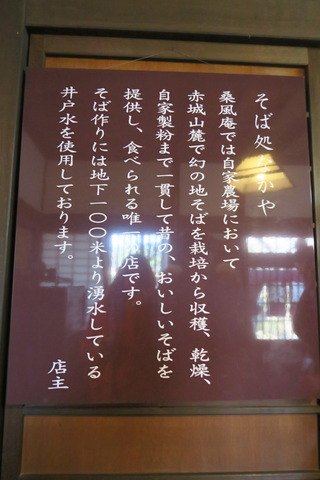 そば処なかや
桑風庵では自家農場において
赤城山麓で幻の地そばを栽培から収穫、乾燥、
自家製粉まで一貫して昔の、おいしいそばを
提供し、食べられる唯一の店です。
そば作りには地下一〇〇米より湧水している
井戸水を使用しております。
店主